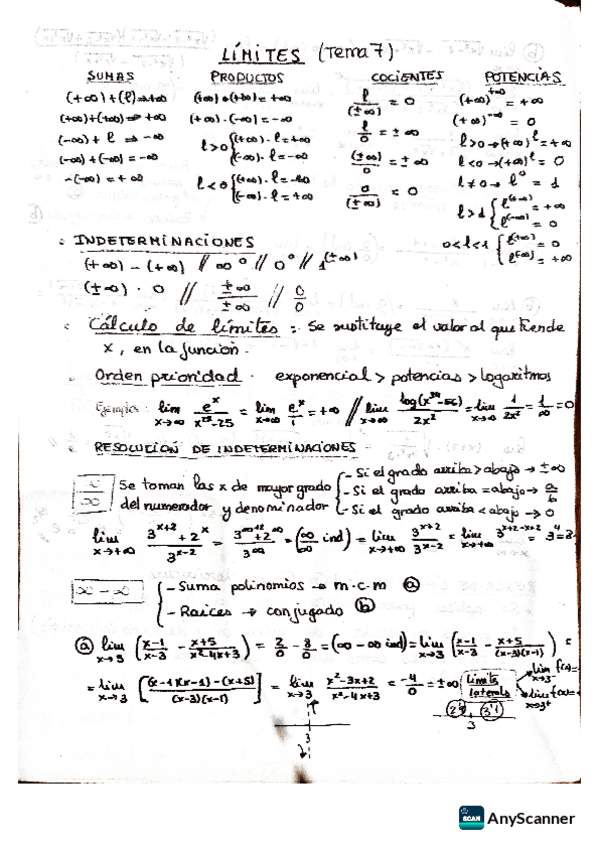 LÍMITES (Tema 7)
SUMAS PRODUCTOS COCIENTES POTENCIAS
(+∞)+(l)⇒+∞
(+∞)+(+∞)⇒+∞
(-∞)+l⇒-∞
(-∞)+(-∞)=-∞
-(-∞)=+∞
(+∞)·(+∞)=+∞
(+∞)·(-∞)=-∞
l>0 {(+∞)·l=+∞
(-∞)·l=-∞
l<0 {(+∞)·l=-∞
(-∞)·l=+∞
l/(±∞) = 0
l/0 = ±∞
(±∞)/0 = ±∞
0/(±∞) = 0
(+∞)^+∞ = +∞
(+∞)^-∞ = 0
l>0→(+∞)^l=+∞
l<0→(+∞)^l=0
l≠0→l^0=1
l>1 {l^(+∞)=+∞
l^(-∞)=0
0<l<1 {l^(+∞)=0
l^(-∞)=+∞
INDETERMINACIONES
(+∞)-(+∞) // ∞^0 // 0^0 // 1^(±∞)
(±∞)·0 // ±∞/±∞ // 0/0
Cálculo de límites: Se sustituye el valor al que tiende
x, en la función.
Orden prioridad· exponencial > potencias > logaritmos
Ejemplos: lim x→∞ = lim x→∞ e^x/1 = +∞ // lim x→∞ = lim x→∞ = 1/∞ = 0
RESOLUCIÓN DE INDETERMINACIONES
∞/∞ Se toman las x de mayor grado
del numerador y denominador
- Si el grado arriba > abajo → ±∞
- Si el grado arriba = abajo → a/b
- Si el grado arriba < abajo → 0
lim x→+∞ (3^(x+2)+2^x)/3^(x-2) = = (∞/∞ ind) = lim x→+∞ 3^(x+2)/3^(x-2) = lim x→+∞ 3^(x+2-x+2) = 3^4 =
∞-∞ - Suma polinomios → m·c·m (a)
- Raíces → conjugado (b)
(a) lim x→3 ((x-1)/(x-3) - (x+5)/(x²-4x+3)) = 2/0 - 8/0 = (∞-∞ ind) = lim x→3 ((x-1)/(x-3) - (x+5)/((x-3)(x-1))) =
= lim x→3 [((x-1)(x-1)-(x+5))/((x-3)(x-1))] = lim x→3 = -4/0 = ±∞ Límites laterales lim x→3⁻ f(x)=
lim x→3⁺ f(x)=
3
3
AnyScanner